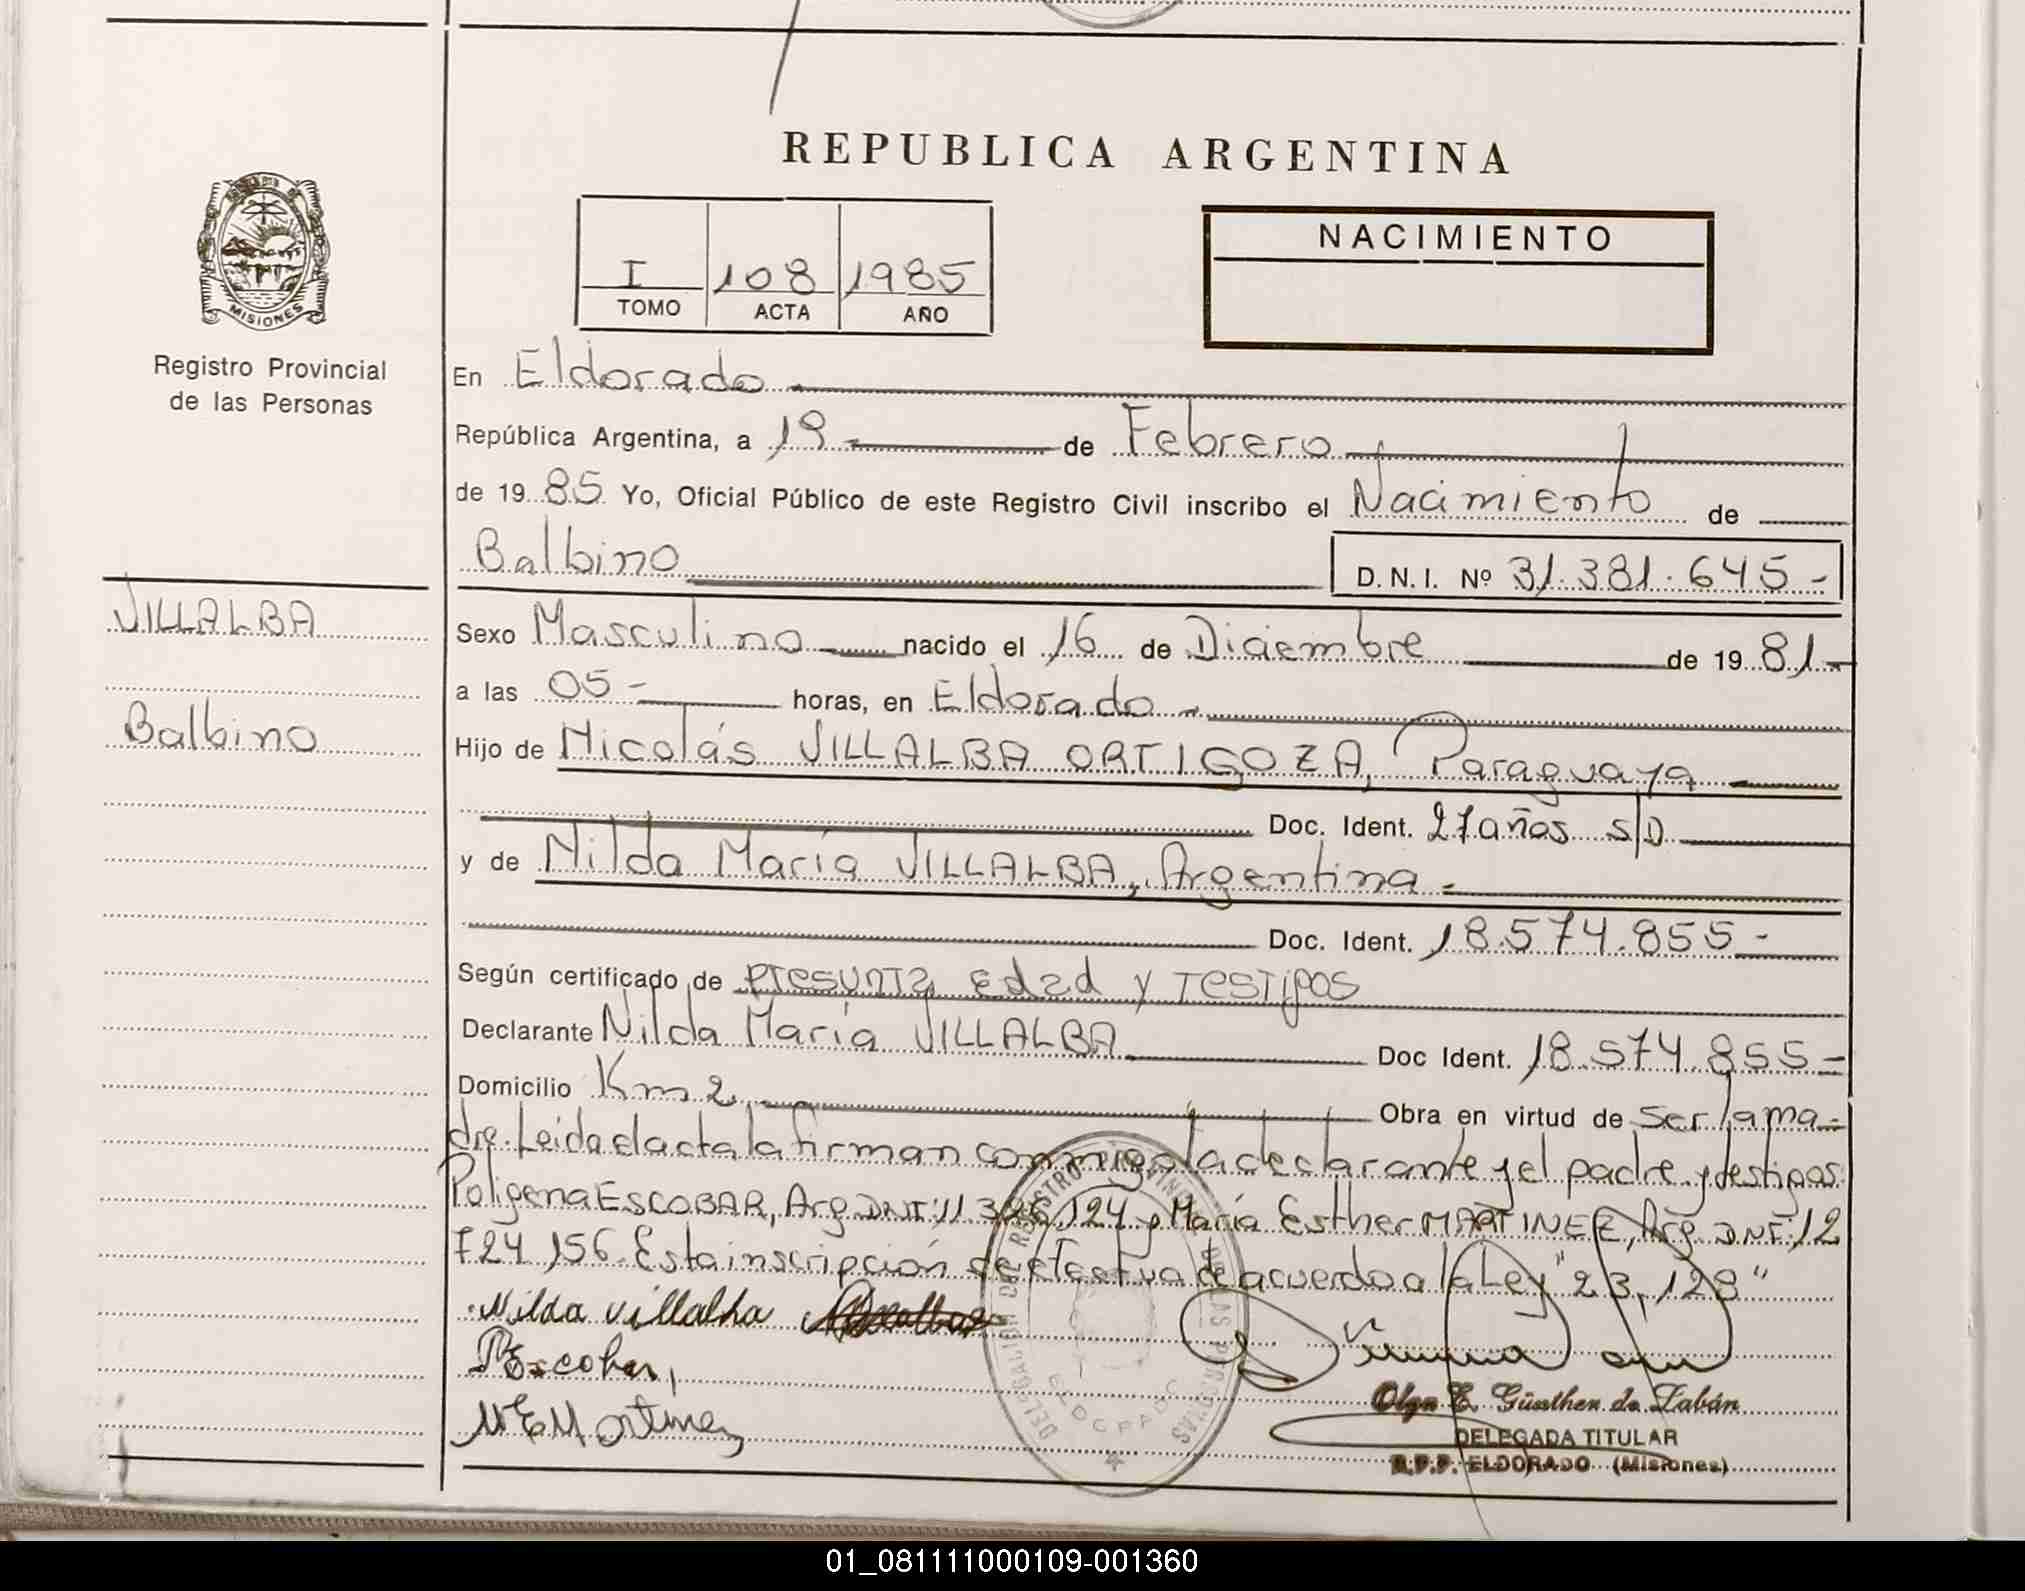 REPUBLICA ARGENTINA
MISIONES
Registro Provincial
de las Personas
I 108 1985
TOMO ACTA AÑO
NACIMIENTO
En Eldorado
República Argentina, a 19 de Febrero
de 1985 Yo, Oficial Público de este Registro Civil inscribo el Nacimiento de
Balbino D.N.I. Nº 31.381.645-
VILLALBA
Balbino
Sexo Masculino nacido el 16 de Diciembre de 1981-
a las 05- horas, en Eldorado
Hijo de Nicolás VILLALBA ORTIGOZA, Paraguaya
Doc. Ident. 27 años s/D
y de Nilda María VILLALBA, Argentina
Doc. Ident. 18.574.855-
Según certificado de presunta edad y testigos
Declarante Nilda María VILLALBA Doc Ident. 18.574.855-
Domicilio Km 2 Obra en virtud de ser la ma-
dre. Leida el acta la firman conmigo la declarante y el padre y testigos
Poligena ESCOBAR, Arg. DNI: 11 124 y María Esther MARTINEZ, Arg. DNI: 12
724,156. Esta inscripción se efectua de acuerdo a la Ley "23,128"
Nilda villalba
Escobar,
M E Martinez
DELEGACION DEL REGISTRO PROVINCIAL DE LAS PERSONAS
ELDORADO
Olga E. Günther de Zabán
DELEGADA TITULAR
R.P.P. ELDORADO (Misiones)
01_081111000109-001360